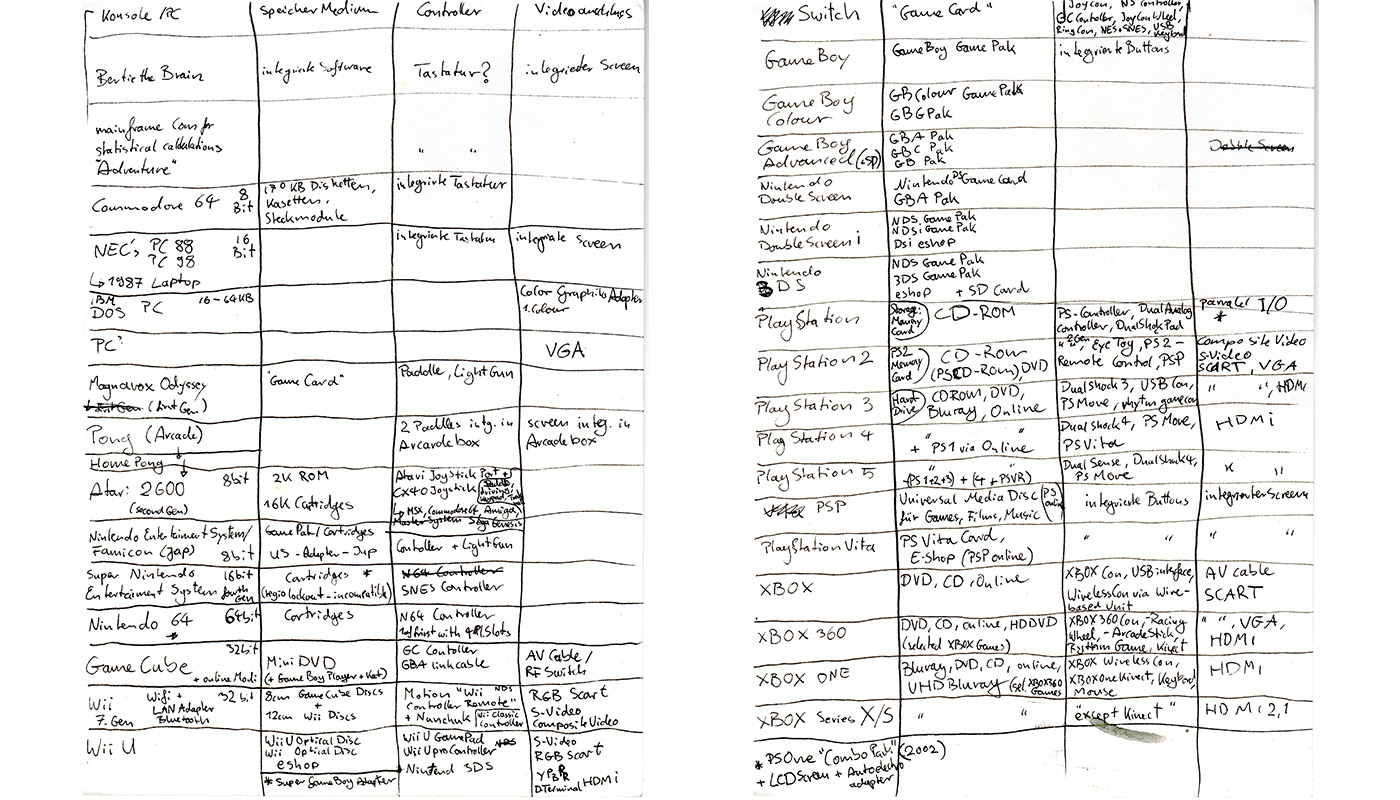 Konsole / PC Speicher Medium Controller Videoanschluss
Bertie the Brain integrierte Software Tastatur? integrierter Screen
mainframe Com for
statistical calculations
"Adventure" " "
Commodore 64 8 Bit 170 KB Disketten, integrierte Tastatur
Kasetten,
Steckmodule
NEC's PC 88 16 Bit integrierte Tastatur integrierte Screen
PC 98
↳ 1987 Laptop
IBM PC 16-64KB Color Graphiks Adapter
DOS 1. Colour
PC? VGA
Magnavox Odyssey "Game Card" Paddle, LightGun
(First Gen)
Pong (Arcade) 2 Paddles intg. in screen integ. in
Arcarde box Arcade box
Home Pong
Atari 2600 8bit 2K ROM Atari Joystick Port +
(second Gen) 16K Cartridges CX40 Joystick
↳ MSX, Commodore 64, Amiga,
Master System, Sega Genesis
Nintendo Entertaiment System/ GamePak / Cartridges Controller + LightGun
Famicon (jap) 8bit US - Adapter - Jap
Super Nintendo 16bit Cartridges * N64 Controller
Entertaiment System fourth Gen (regio lockout - incompatible) SNES Controller
Nintendo 64 64bit Cartridges N64 Controller
* 1st first with 4 Pl. Slots
GameCube 32bit Mini DVD GC Contoller AV Cable /
+ online Modi (+ Game Boy Player + Kat) GBA link cable RF Switch
Wii Wifi + 32 bit 8cm GameCube Discs Motion "Wii NDS RGB Scart
7. Gen LAN Adapter + Controller Remote" S-Video
Bluetooth 12cm Wii Discs + Nunchuk Wii Classic Controller Composite Video
Wii U Wii U Optical Disc Wii U GamePad S-Video
Wii Optical Disc Wii U pro Controller RGB Scart
eshop * Nintend 3DS YPBPR
* Super GameBoy Adapter D.Terminal HDMi
Switch "Game Card" JoyCon, NS Controller,
GC Controller, JoyCon Wheel,
Ring Con, NES + SNES, USB Keyboard
GameBoy GameBoy Game Pak integrierte Buttons
GameBoy GB Colour GamePak
Colour GBGPak
Game Boy GBA Pak Double Screen
Advanced (+SP) GBC Pak
GB Pak
Nintendo NintendoDS Game Card
Double Screen GBA Pak
Nintendo NDS Game Pak
Double Screen i NDSi GamePak
Dsi eshop
Nintendo NDS Game Pak
3DS 3DS Game Pak
eshop + SD Card
PlayStation Storage: Memory Card CD-ROM PS-Controller, DualAnalog parralel I/O
Controller, DualShokPad *
PlayStation 2 PS2 Memory Card CD-Rom " 2Gen ", Eye Toy, PS2- Composite Video
(PSCD-Rom), DVD Remote Control, PSP S-Video
SCART, VGA
PlayStation 3 Hard Drive CDRom, DVD, Dualshock 3, USB Con, " ", HDMi
Bluray, Online PS Move, rhytm gamecon
Play Station 4 " " Dual shock 4, PS Move, HDMi
+ PS1 via Online PS Vita
PlayStation 5 " " Dual Sense, DualShock4, " "
-(PS1+2+3) + (4+PSVR) PS Move
PSP Universal Media Disc PS Online integrierte Buttons integrierter Screen
für Games, Films, Music
PlayStation Vita PS Vita Card, " " " "
E-Shop (PSP online)
XBOX DVD, CD, Online XBOX Con, USB interface, AV cable
Wireless Con via Wire- SCART
based Unit
XBOX 360 DVD, CD, online, HDDVD XBOX 360 Con, -Racing " ", VGA,
(selected XBOX Games) Wheel, -ArcadeStick, HDMi
Rythm Game, Kinect
XBOX ONE Bluray, DVD, CD, online, XBOX Wireless Con, HDMi
UHD Bluray (sel. XBOX360 Games XBOXOne Kinect, Keyboad,
Mouse
XBOX Series X/S " " "except Kinect" HDMi 2,1
* PSOne "Combo Pack" (2002)
+ LCD Screen + Autoelectro
adapter